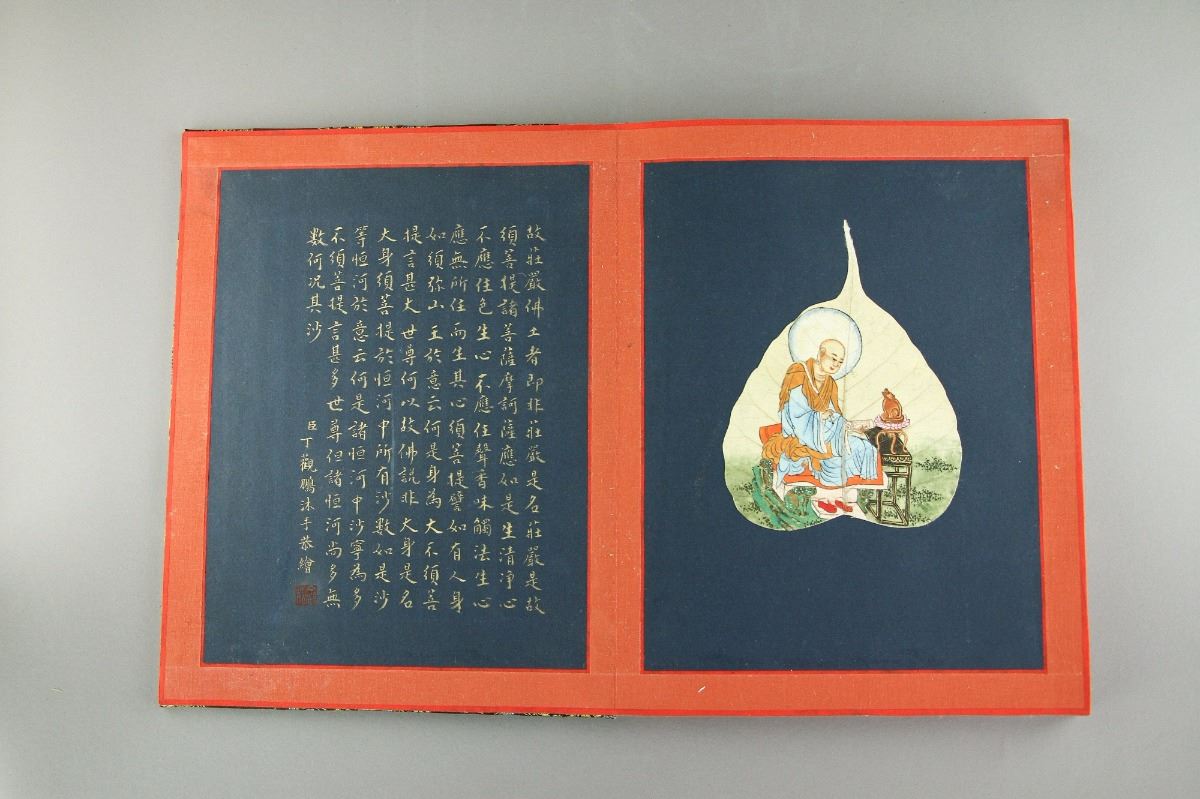 故莊嚴佛土者即非莊嚴是名莊嚴是故
須菩提諸菩薩摩訶薩應如是生清淨心
不應住色生心不應住聲香味觸法生心
應無所住而生其心須菩提譬如有人身
如須弥山王於意云何是身為大不須菩
提言甚大世尊何以故佛說非大身是名
大身須菩提於恒河中所有沙數如是沙
等恒河於意云何是諸恒河中沙寧為多
不須菩提言甚多世尊但諸恒河尚多無
數何况其沙
臣丁觀鵬沐手恭繪